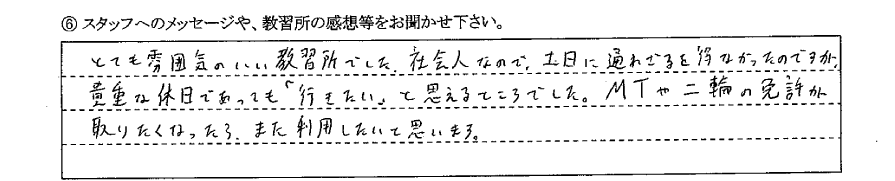 ⑥ スタッフへのメッセージや、教習所の感想等をお聞かせ下さい。
とても雰囲気のいい教習所でした。社会人なので、土日に通わざるを得なかったのですが、
貴重な休日であっても「行きたい」と思えるところでした。MTや二輪の免許が
取りたくなったら、また利用したいと思います。